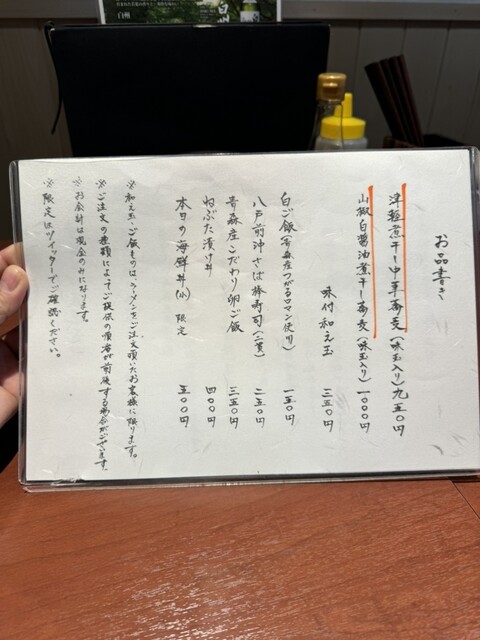 お品書き
津軽煮干し中華蕎麦（味玉入り）九五〇円
山椒白醤油煮干し蕎麦（味玉入り）一〇〇〇円
味付和え玉 三五〇円
白ご飯（青森産つがるロマン使用）一五〇円
八戸前沖さば棒寿司（二貫）二五〇円
青森産こだわり卵ご飯 三五〇円
ねぶた漬け丼 四〇〇円
本日の海鮮丼（小）限定 五〇〇円
※和え玉、ご飯ものは、ラーメンをご注文頂いたお客様に限ります。
※ご注文の種類によってご提供の順番が前後する場合がございます。
※お会計は現金のみになります。
※限定はツイッターでご確認ください。
白州